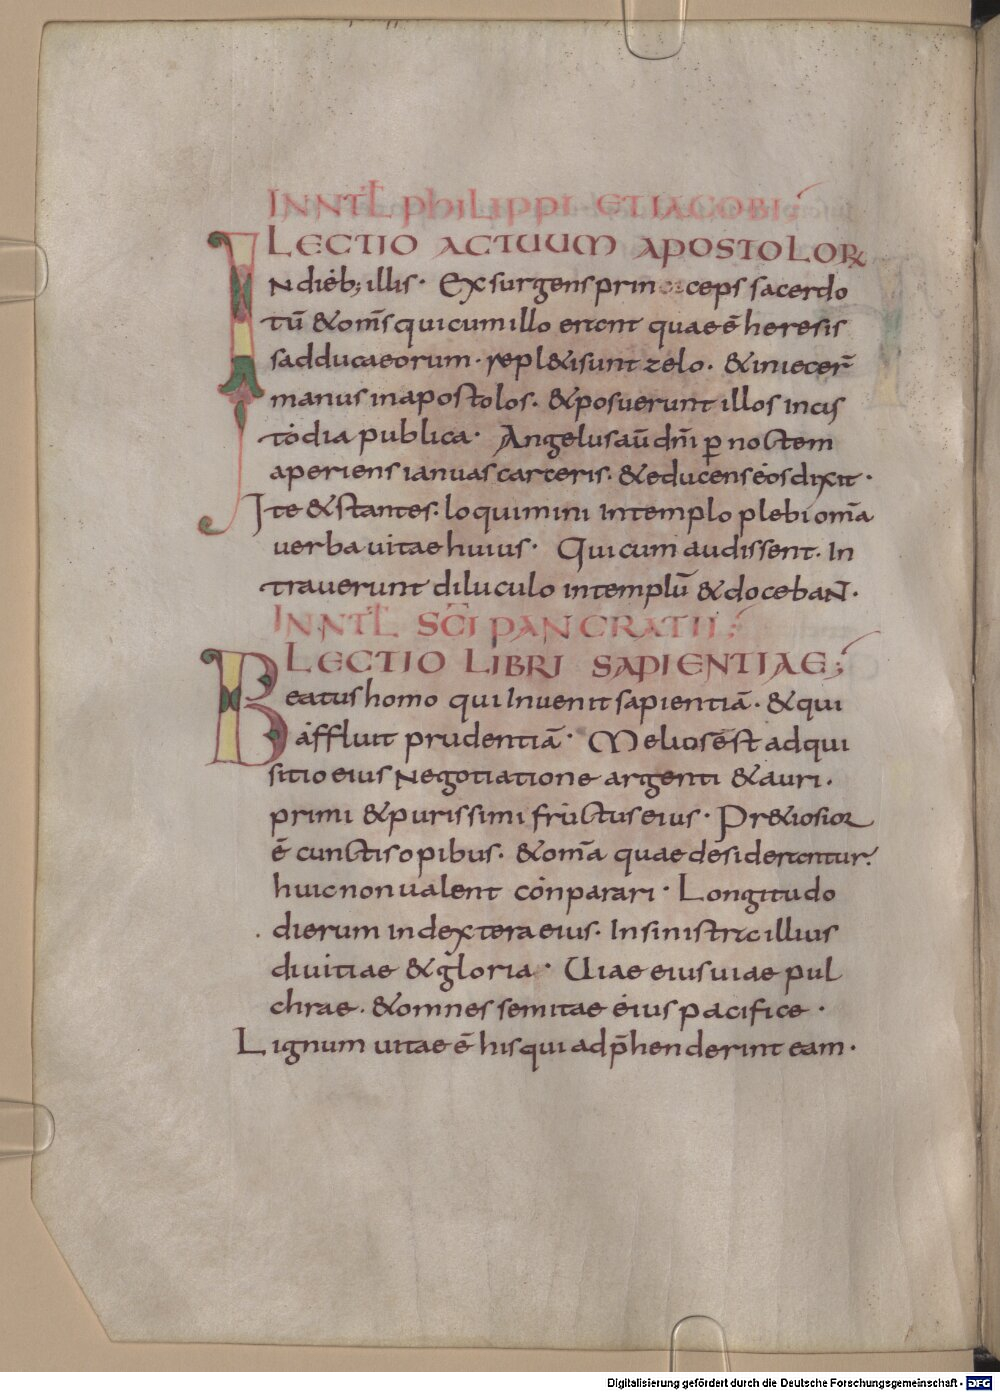 INNTL PHILIPPI ET IACOBI
LECTIO ACTUUM APOSTOLOR
N dieb; illis · Exsurgens princeps sacerdo
tū & om̄s qui cum illo erant quae ē heresis
sadducaeorum · repl& isunt zelo · & iniecer̄
manus in apostolos · & posuerunt illos incus
todia publica · Angelus aū dn̄i p noctem
aperiens ianuas carceris · & educens eos dixit ·
Ite & stantes · loquimini in templo plebi om̄a
uerba uitae huius · Qui cum audissent · In
trauerunt diluculo in templū & doceban̄ ·
INNTL SC̄I PANCRATII
LECTIO LIBRI SAPIENTIAE;
Beatus homo qui Inuenit sapientiā · & qui
affluit prudentiā · Melior ē st adqui
sitio eius Negotiatione argenti & auri ·
primi & purissimi fructus eius · Pr&iosior
ē cunctis opibus · & om̄a quae desiderantur ·
huic non ualent conparari · Longitudo
dierum in dextera eius · In sinistra illius
diuitiae & gloria · Uiae eius uiae pul
chrae · & omnes semitae eius pacifice ·
Lignum uitae ē his qui adp̄henderint eam ·
Digitalisierung gefördert durch die Deutsche Forschungsgemeinschaft - DFG